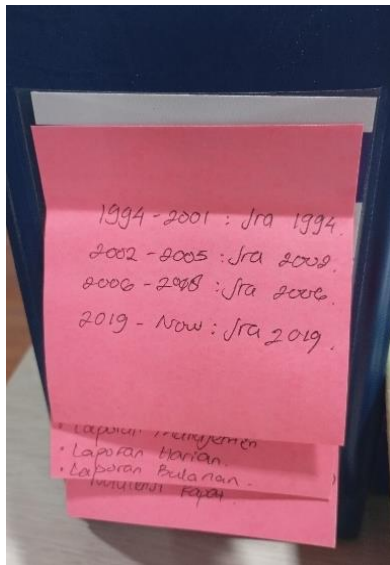 1994 - 2001 : Jra 1994.
2002 - 2005 : Jra 2002.
2006 - 2018 : Jra 2006.
2019 - Now : Jra 2019.
• Laporan Manajemen
• Laporan Harian.
• Laporan Bulanan.
Rapat